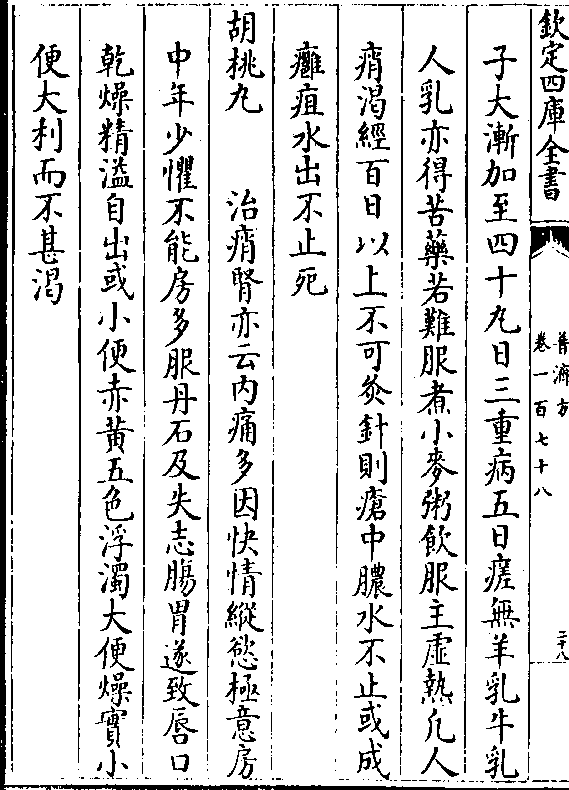 欽定四庫全書
普濟方
卷一百七十八
二十八
子大漸加至四十九日三重病五日瘥無羊乳牛乳
人乳亦得苦藥若難服煮小麥粥飲服主虛熱凢人
痟渴經百日以上不可灸針則瘡中膿水不止或成
癰疽水出不止死
胡桃丸　治痟腎亦云内痟多因快情縱慾極意房
中年少懼不能房多服丹石及失志腸胃遂致唇口
乾燥精溢自出或小便赤黃五色浮濁大便燥實小
便大利而不甚渴